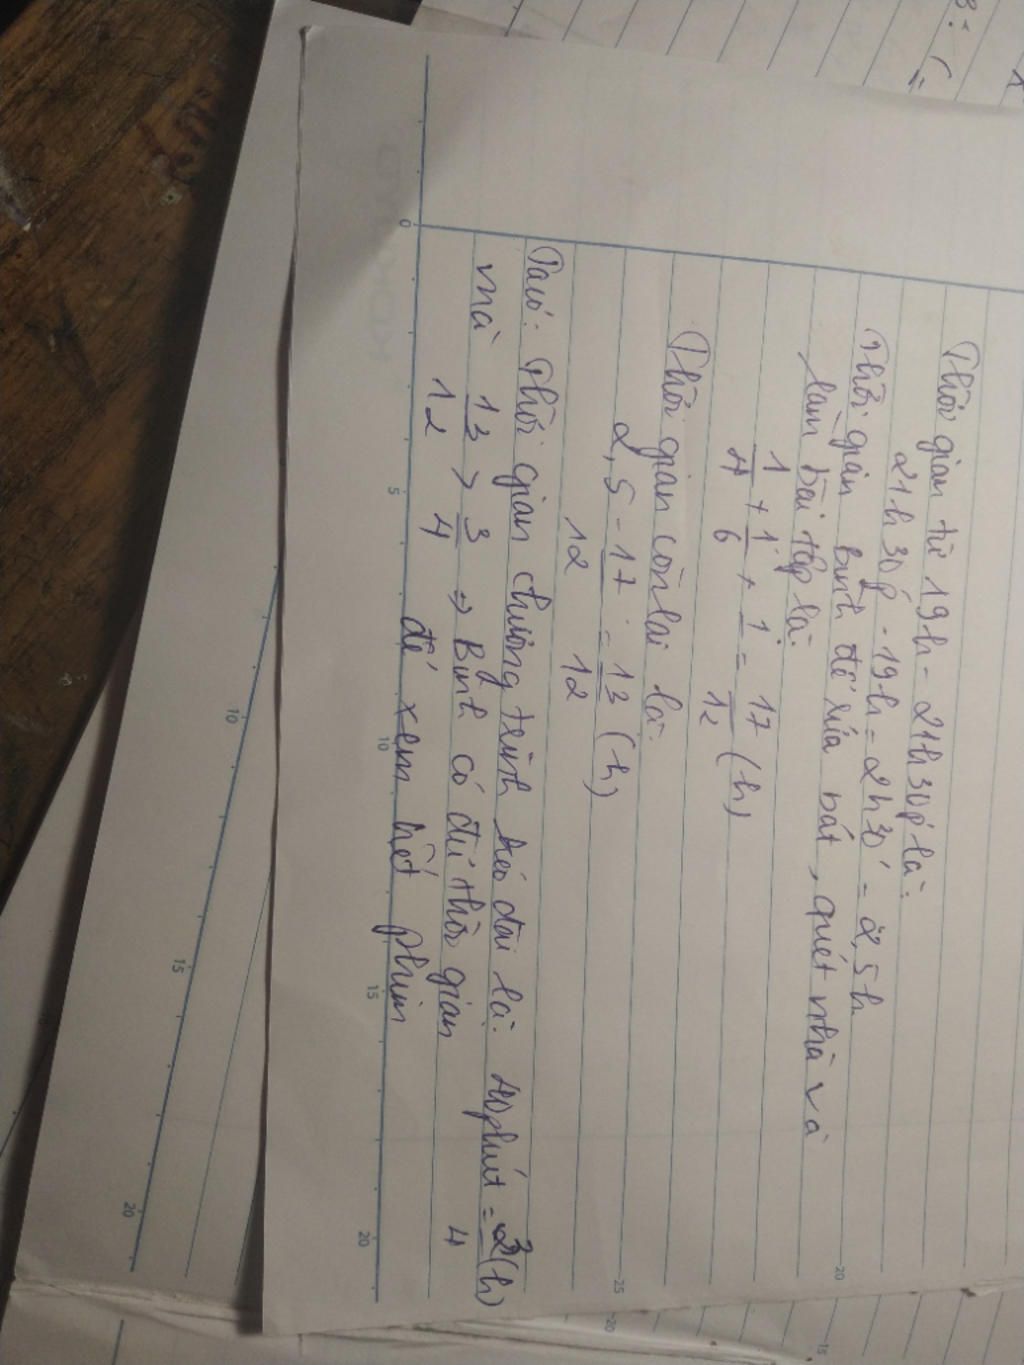 Thời gian từ 19h - 21h30p' là:
21h30p' - 19h = 2h30' = 2,5h
Thời gian Bình để rửa bát, quét nhà và
làm bài tập là:
1/4 + 1/6 + 1 = 17/12 (h)
Thời gian còn lại là:
2,5 - 17/12 = 13/12 (h)
Ta có: Thời gian chương trình kéo dài là: phút = 3/4 (h)
mà 13/12 > 3/4 => Bình có đủ thời gian
để xem hết phim
0
5
10
15
20
10
15
20
20
25
20
15